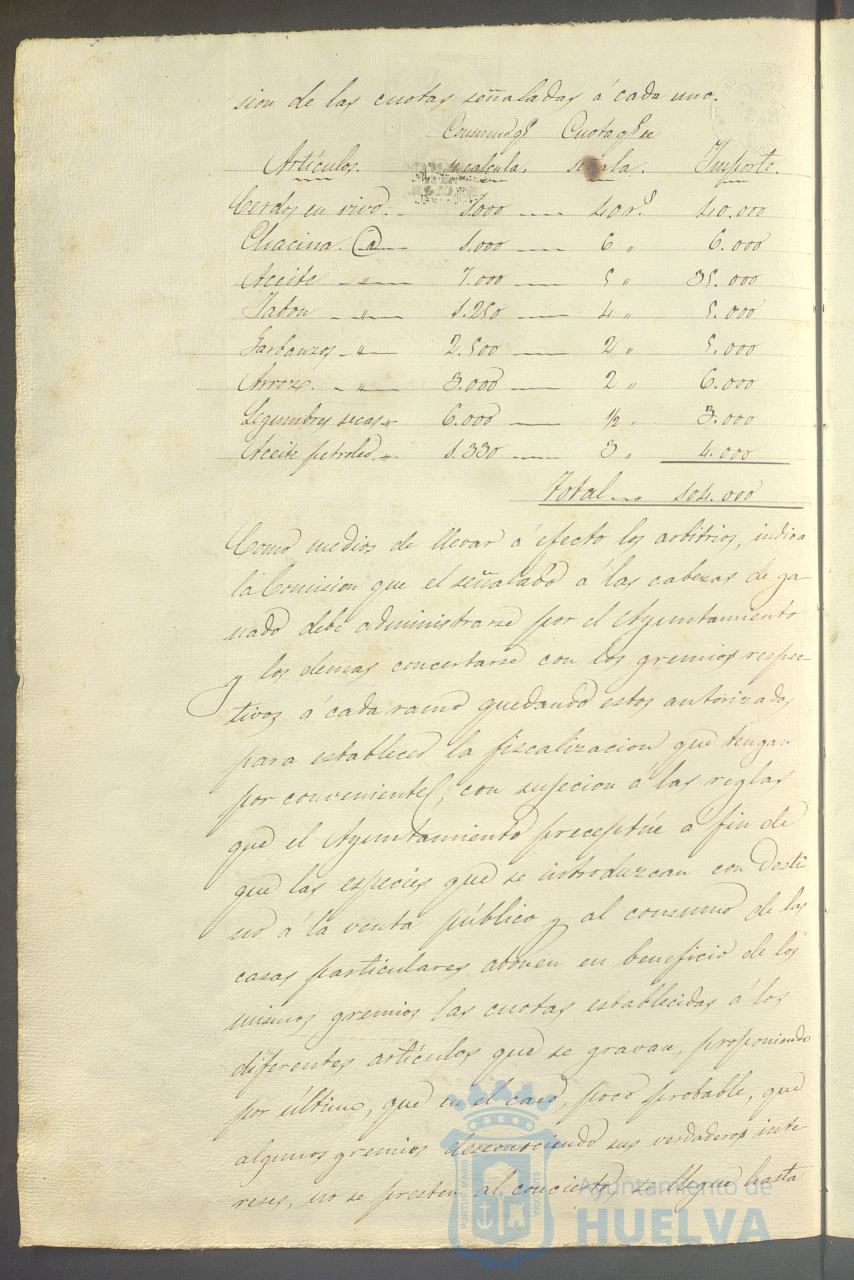 sion de las cuotas señaladas á cada uno.
Artículos. Consumo qe se calcula. Cuota qe se señala. Importe.
Cerdos en vivo. 1.000 40 rs 40.000
Chacina. @ 1.000 6 " 6.000
Aceite " 7.000 5 " 35.000
Jabon " 1.250 4 " 5.000
Garbanzos " 2.500 2 " 5.000
Arroz. " 3.000 2 " 6.000
Legumbres secas " 6.000 1/2 " 3.000
Aceite petroleo. " 1.330 3 " 4.000
Total 104.000
Como medios de llevar á efecto los arbitrios, indica
la Comision que el señalado á las cabezas de ga-
nado debe administrarse por el Ayuntamiento
y los demas concertarse con los gremios respec-
tivos á cada ramo quedando estos autorizados
para establecer la fiscalizacion que tengan
por conveniente, con sujecion á las reglas
que el Ayuntamiento preceptúe a fin de
que las especies que se introduzcan con desti
no á la venta pública y al consumo de las
casas particulares abonen en beneficio de los
mismos gremios las cuotas establecidas á los
diferentes artículos que se gravan, proponiendo
por último, que en el caso, poco probable, que
algunos gremios desconociendo sus verdaderos inte
reses, no se presten al concierto, se llegue hasta
Ayuntamiento de
HUELVA